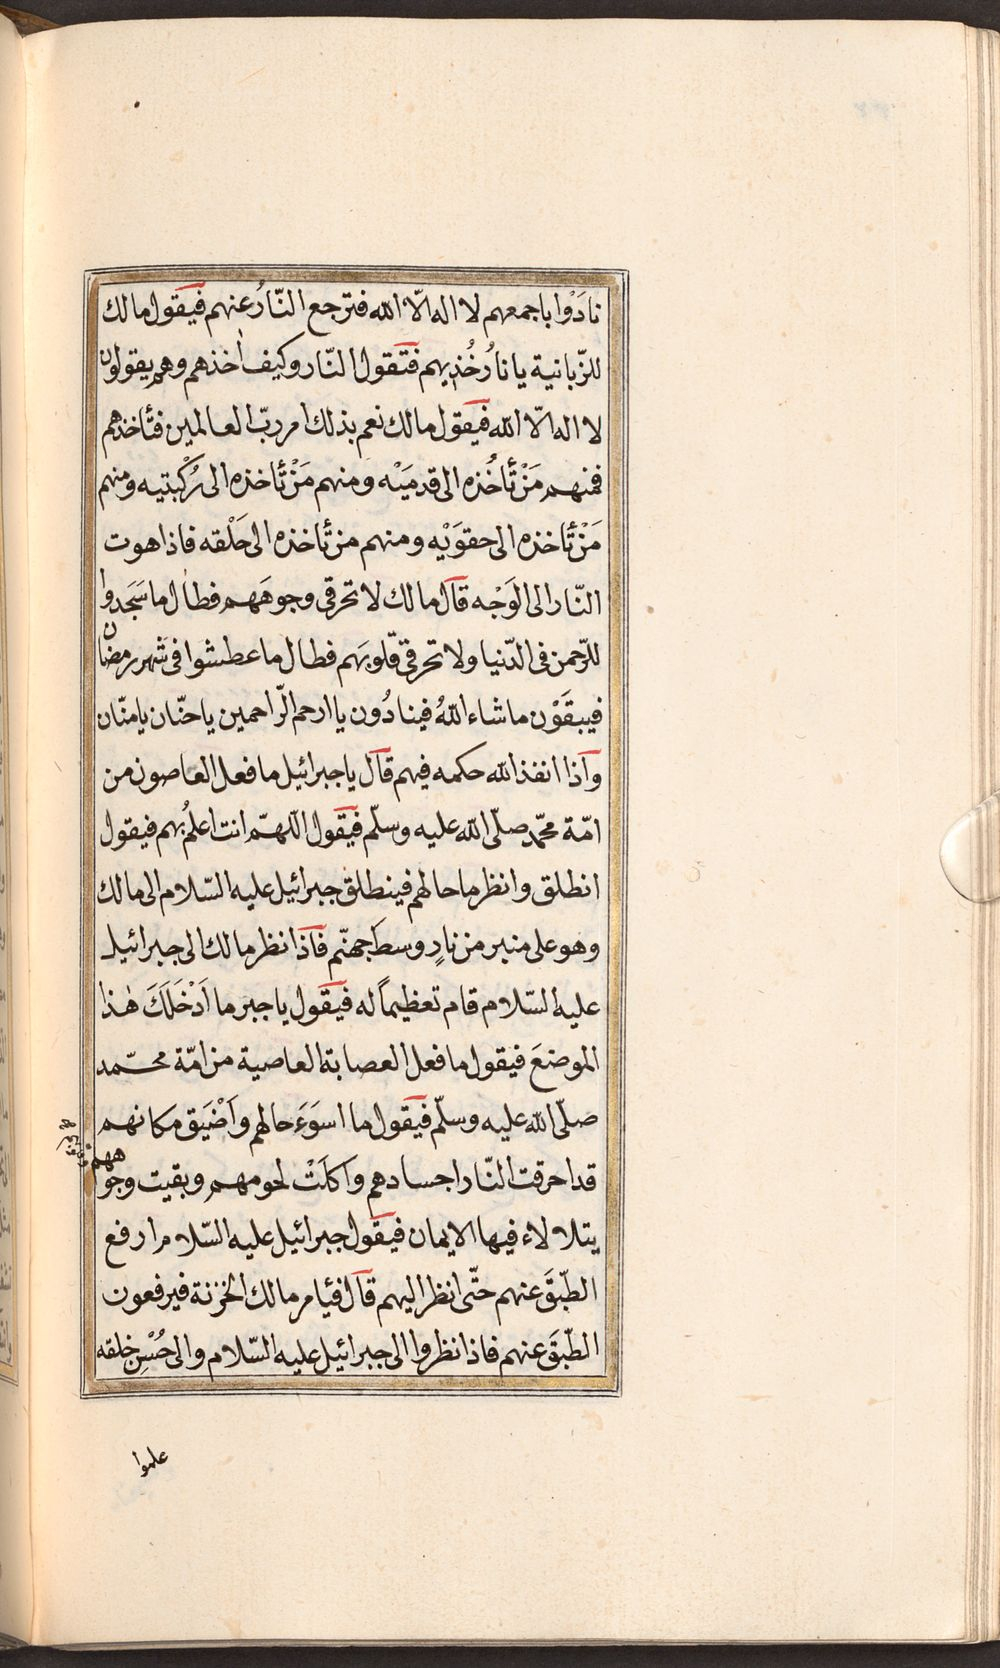 نادَوْا باجمعهم لا اله الّا الله فترجع النّارُ عنهم فيقول مالك
للزّبانية يا نارُ خُذيهم فتقول النّار وكيف اٰخذهم وهم يقولون
لا اله الّا الله فيقول مالك نعم بذلك امر ربّ العالمين فتأخذهم
فمنهم مَنْ تأخُذه الى قدمَيْه ومنهم مَنْ تأخذه الى رُكْبتيه ومنهم
مَنْ تأخذه الى حقوَيْه ومنهم من تأخذه الى حَلْقه فاذا هوت
النّار الى الوَجْه قال مالك لا تحرقى وجوهَهم فطال ما سَجَدوا
للرّحمن فى الدّنيا ولا تحرقى قلوبَهم فطال ما عطشوا فى شهر رمضان
فيبقَوْن ما شاء اللهُ فينادُون يا ارحم الرّاحمين يا حنّان يا منّان
واذا انفذ الله حكمه فيهم قال يا جبرائيل ما فعل العاصون من
امّة محمّد صلّى الله عليه وسلّم فيقول اللّهمّ انت اعلمُ بهم فيقول
انطلق وانظر ما حالهم فينطلق جبرائيل عليه السّلام الى مالك
وهو على منبر من نارٍ وسطَ جهنّم فاذا نظر مالك الى جبرائيل
عليه السّلام قام تعظيماً له فيقول يا جبر ما اَدْخَلَكَ هٰذا
الموضعَ فيقول ما فعل العصابة العاصية من امّة محمّد
صلّى الله عليه وسلّم فيقول ما اسوَءَ حالهم واَضْيَق مكانهم
قد احرقت النّار اجسادهم واكلَتْ لحومهم وبقيت وجوههم
يتلالاء فيها الايمان فيقول جبرائيل عليه السّلام ارفع
الطّبقَ عنهم حتّى انظر اليهم قال فيأمر مالك الخزنة فيرفعون
الطّبقَ عنهم فاذا نظروا الى جبرائيل عليه السّلام والى حُسْنِ خلقه
علموا